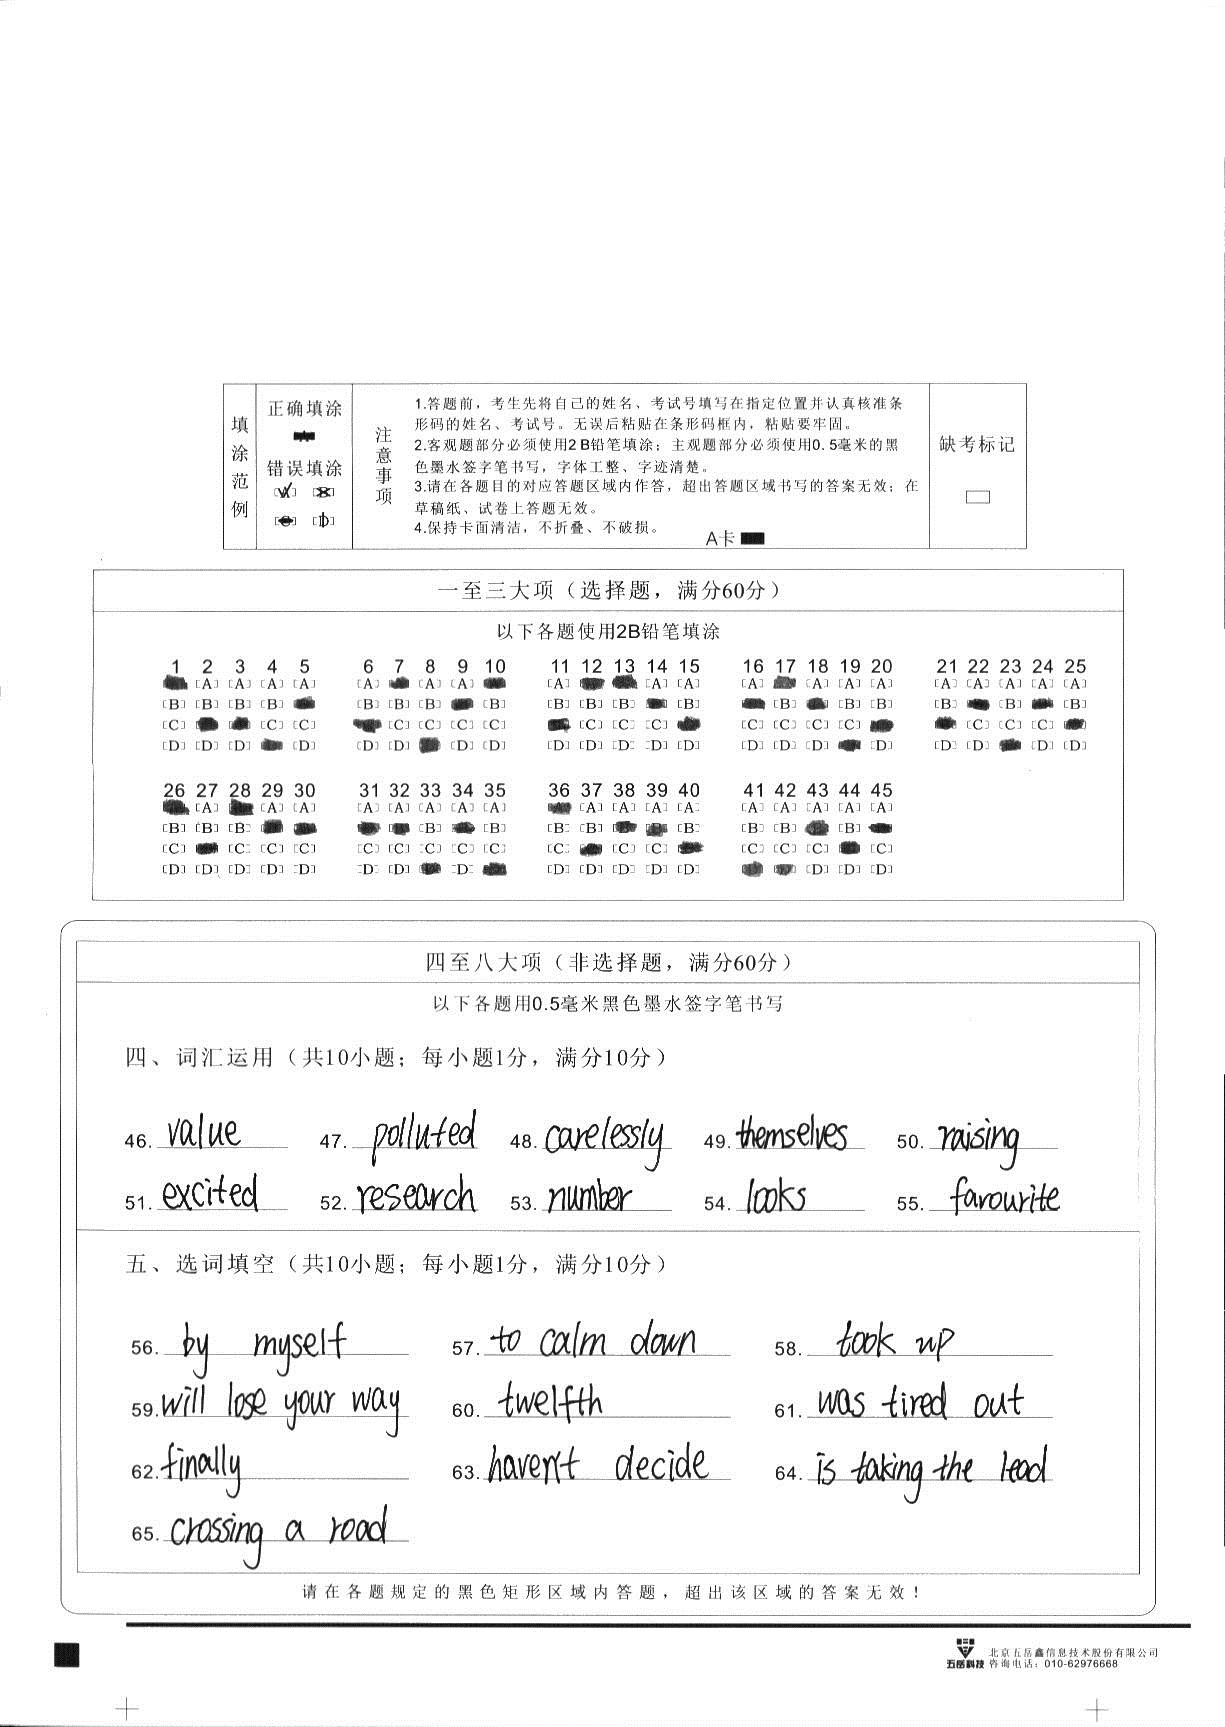 填涂范例
正确填涂
错误填涂
注意事项
1.答题前，考生先将自己的姓名、考试号填写在指定位置并认真核准条
形码的姓名、考试号。无误后粘贴在条形码框内，粘贴要牢固。
2.客观题部分必须使用2B铅笔填涂；主观题部分必须使用0.5毫米的黑
色墨水签字笔书写，字体工整、字迹清楚。
3.请在各题目的对应答题区域内作答，超出答题区域书写的答案无效；在
草稿纸、试卷上答题无效。
4.保持卡面清洁，不折叠、不破损。
A卡
缺考标记
一至三大项（选择题，满分60分）
以下各题使用2B铅笔填涂
1 2 3 4 5 6 7 8 9 10 11 12 13 14 15 16 17 18 19 20 21 22 23 24 25
[A] [A] [A] [A] [A] [A] [A] [A] [A] [A] [A] [A] [A] [A] [A] [A] [A] [A] [A]
[B] [B] [B] [B] [B] [B] [B] [B] [B] [B] [B] [B] [B] [B] [B] [B] [B] [B] [B]
[C] [C] [C] [C] [C] [C] [C] [C] [C] [C] [C] [C] [C] [C] [C] [C] [C] [C]
[D] [D] [D] [D] [D] [D] [D] [D] [D] [D] [D] [D] [D] [D] [D] [D] [D] [D] [D] [D] [D]
26 27 28 29 30 31 32 33 34 35 36 37 38 39 40 41 42 43 44 45
[A] [A] [A] [A] [A] [A] [A] [A] [A] [A] [A] [A] [A] [A] [A] [A] [A]
[B] [B] [B] [B] [B] [B] [B] [B] [B] [B] [B]
[C] [C] [C] [C] [C] [C] [C] [C] [C] [C] [C] [C] [C] [C] [C] [C]
[D] [D] [D] [D] [D] [D] [D] [D] [D] [D] [D] [D] [D] [D] [D] [D]
四至八大项（非选择题，满分60分）
以下各题用0.5毫米黑色墨水签字笔书写
四、词汇运用（共10小题；每小题1分，满分10分）
46. value 47. polluted 48. carelessly 49. themselves 50. raising
51. excited 52. research 53. number 54. looks 55. favourite
五、选词填空（共10小题；每小题1分，满分10分）
56. by myself 57. to calm down 58. took up
59. will lose your way 60. twelfth 61. was tired out
62. finally 63. haven't decide 64. is taking the lead
65. crossing a road
请在各题规定的黑色矩形区域内答题，超出该区域的答案无效！
五岳科技
北京五岳鑫信息技术股份有限公司
咨询电话：010-62976668